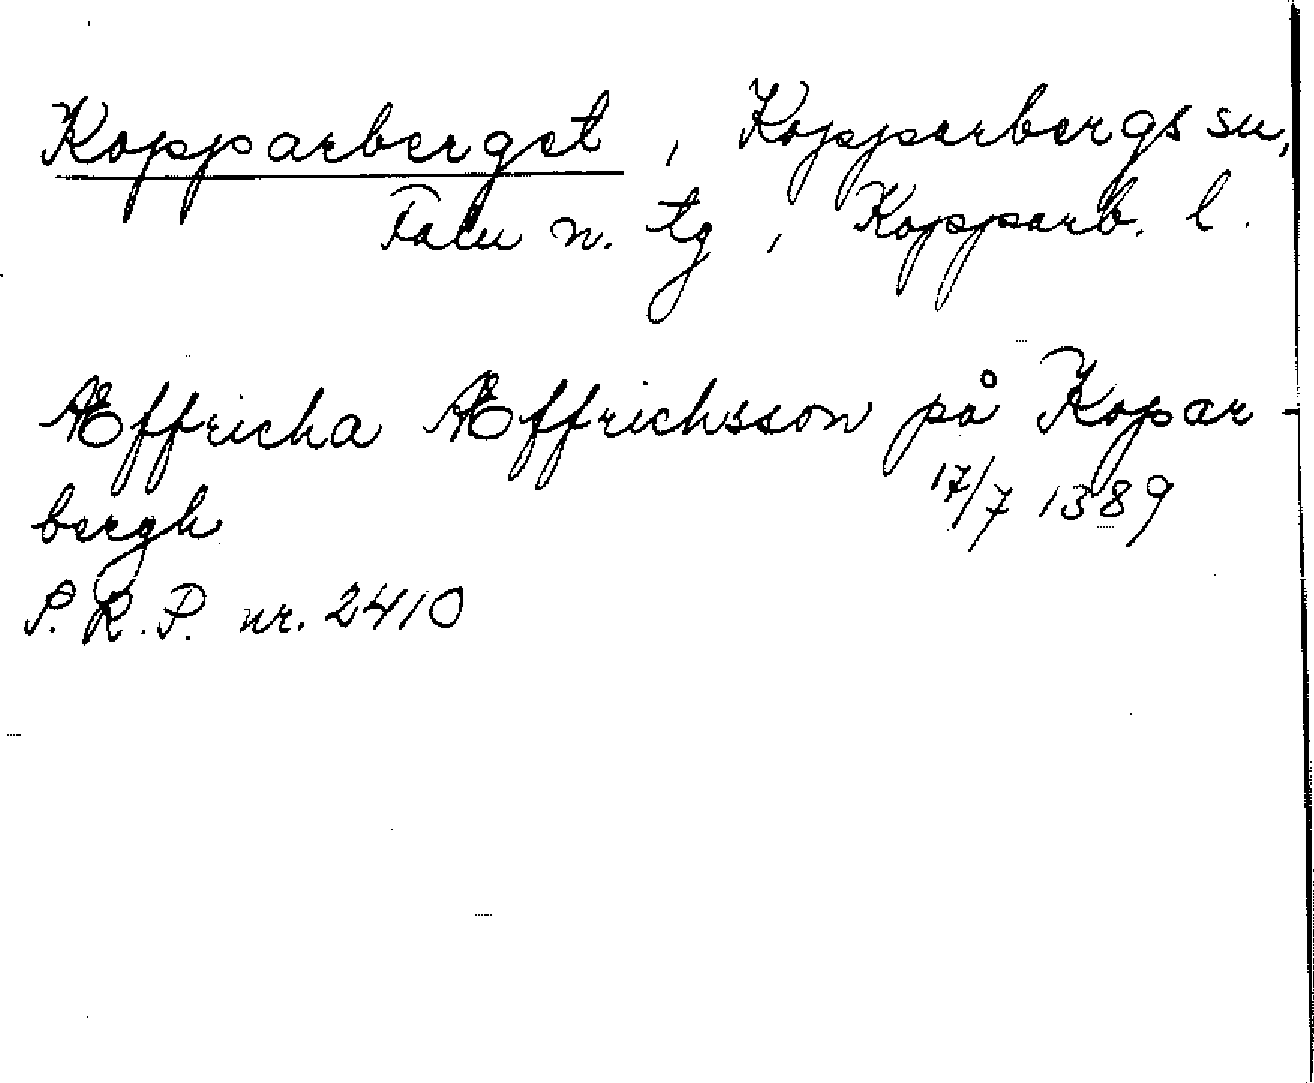 Kopparberget, Kopparbergs sn,
Falu n. tg, Kopparb. l.
Æffricha Æffrichsson på Kopar-
bergh 17/7 1389
S.R.P. nr. 2410